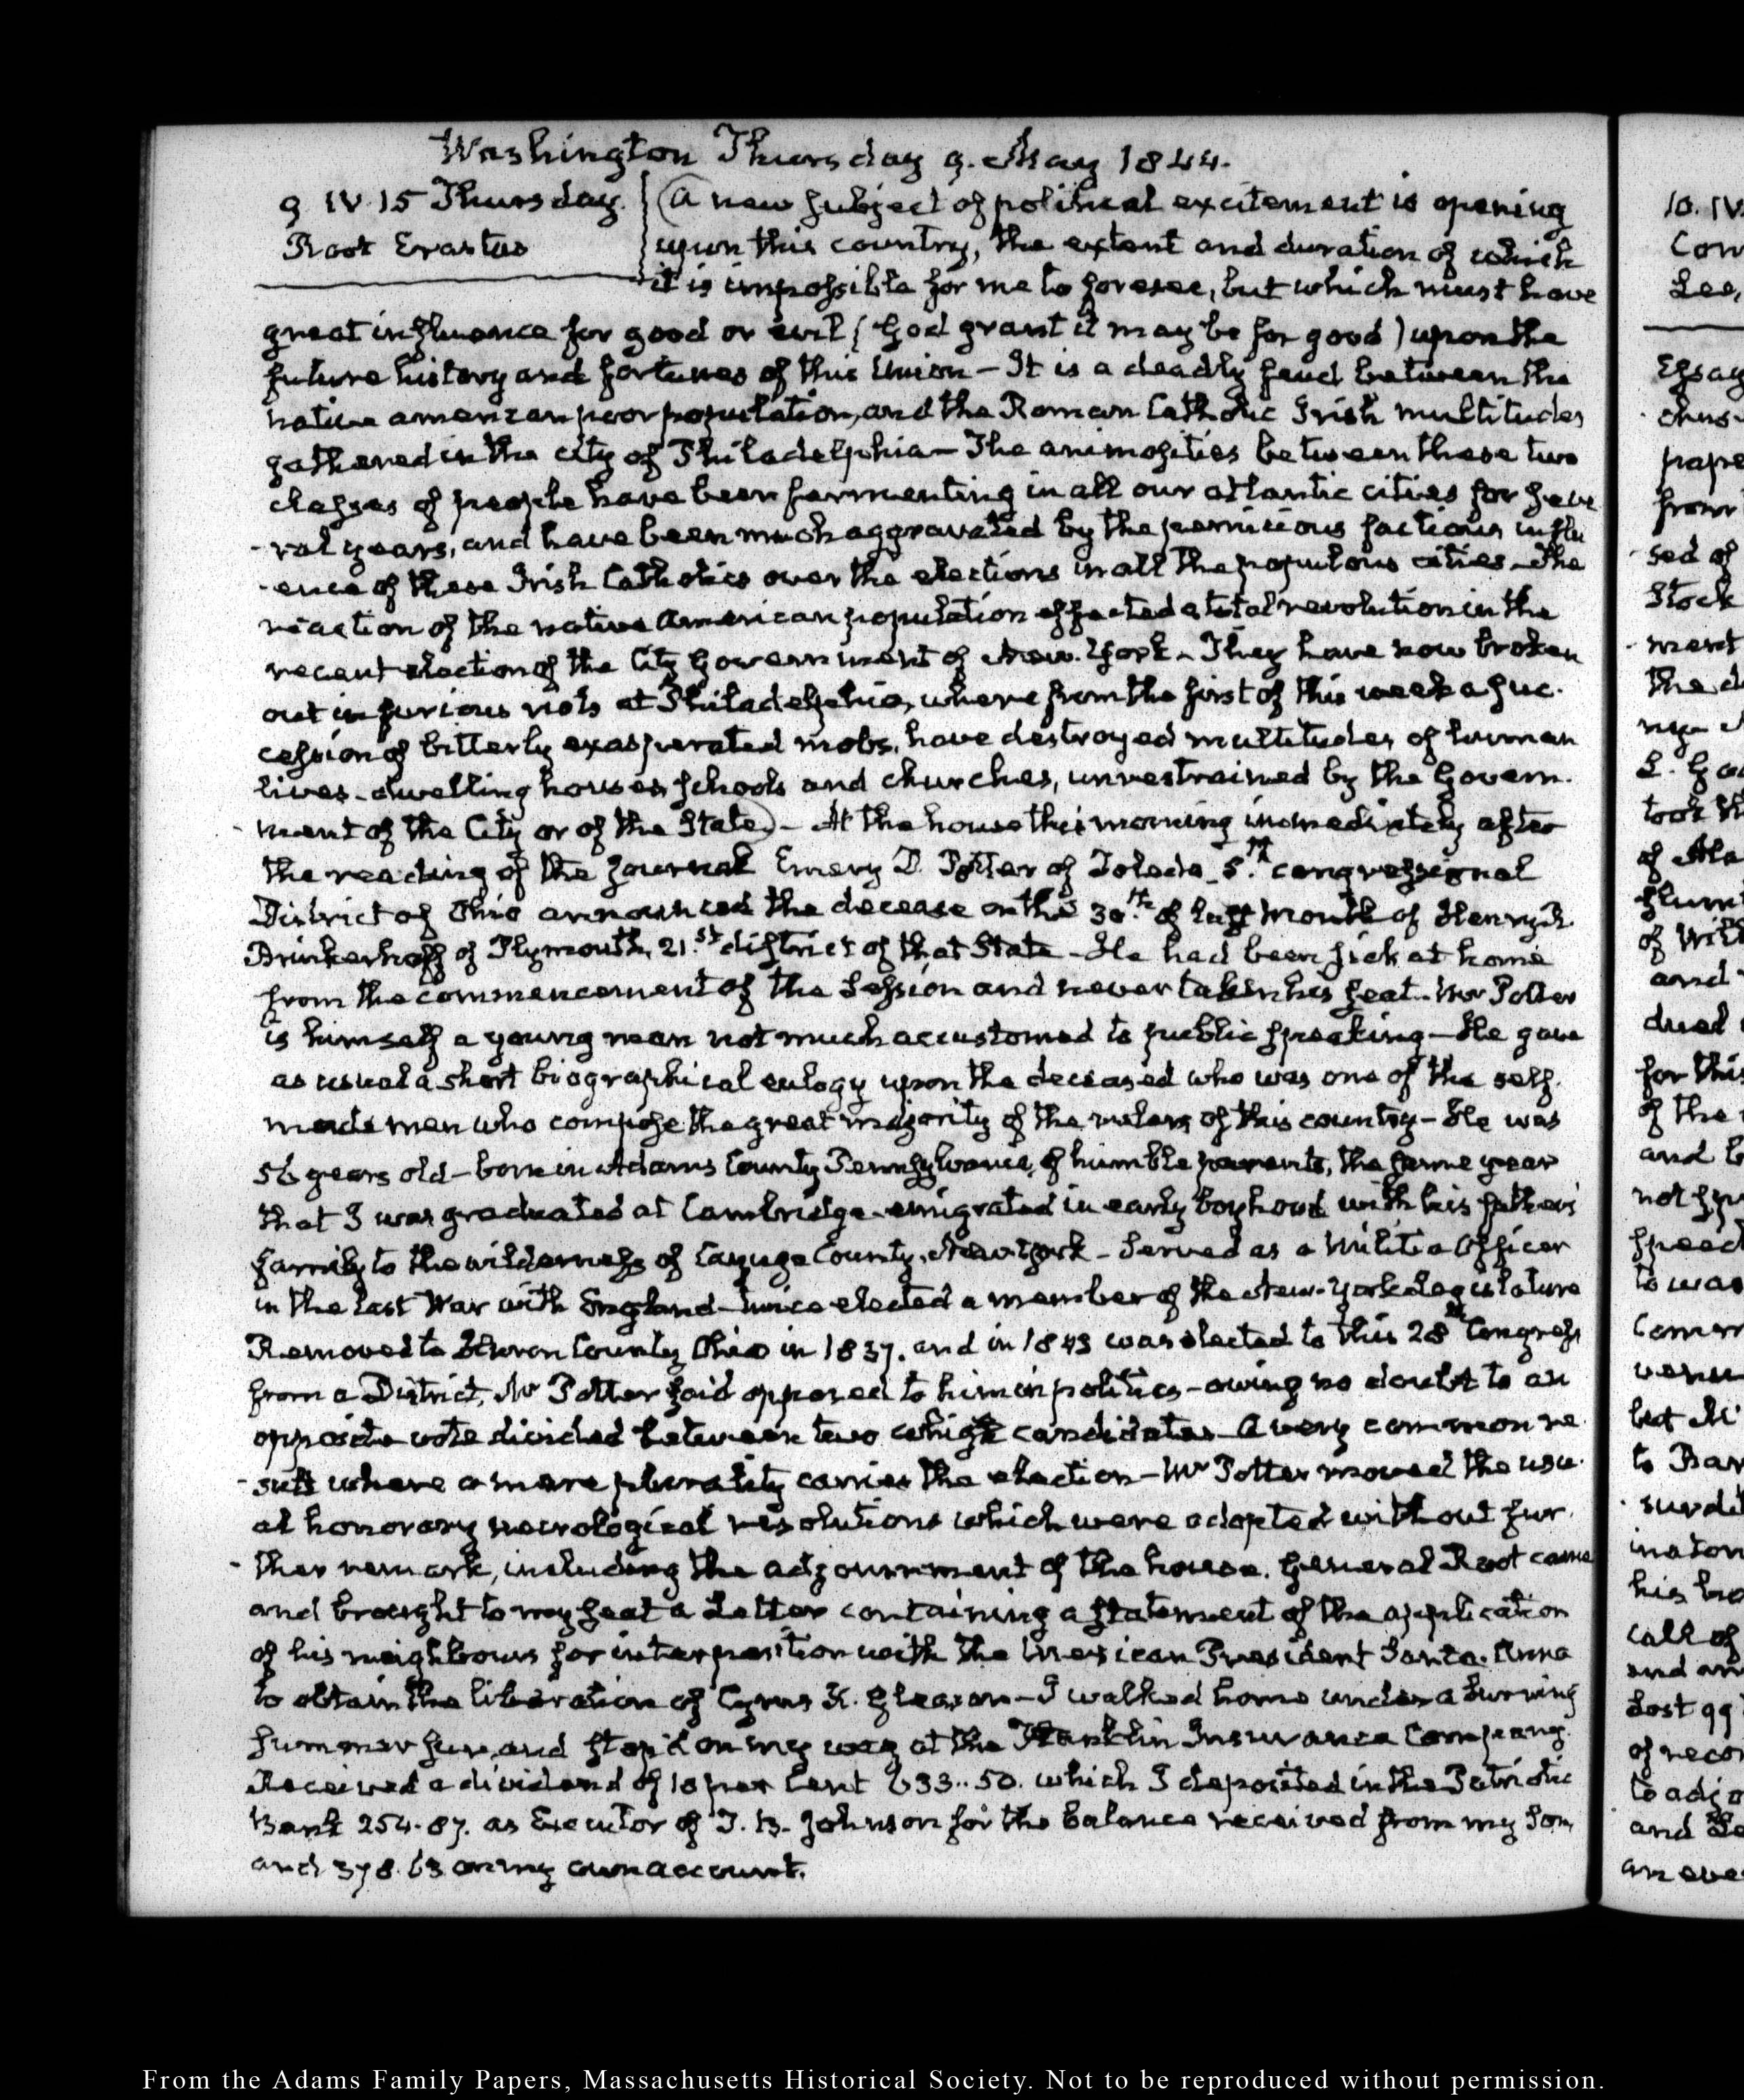 Washington Thursday 9. May 1844.
9. IV.15 Thursday.
Root Erastus
A new subject of political excitement is opening
upon this country, the extent and duration of which
it is impossible for me to foresee, but which must have
great influence for good or evil (God grant it may be for good) upon the
future history and fortunes of this Union — It is a deadly feud between the
native american poor population, and the Roman Catholic Irish multitudes
gathered in the city of Philadelphia — The animosities between these two
classes of people have been fermenting in all our atlantic cities for seve
-ral years, and have been much aggravated by the pernicious factious influ
-ence of these Irish Catholics over the elections in all the populous cities — The
reaction of the native American population effected a total revolution in the
recent election of the City Government of New-York — They have now broken
out in furious riots at Philadelphia, where from the first of this week a suc-
cession of bitterly exasperated mobs, have destroyed multitudes of human
lives — dwelling houses schools and churches, unrestrained by the Govern-
-ment of the City or of the State) — At the house this morning immediately after
the reading of the journal Emery D. Potter of Toledo 5.th congressional
District of Ohio announced the decease on the 30.th of last month of Henry R.
Brinkerhoff of Plymouth, 21.st district of that State — He had been sick at home
from the commencement of the Session and never taken his seat. Mr Potter
is himself a young man not much accustomed to public speaking — He gave
as usual a short biographical eulogy upon the deceased who was one of the self-
made men who compose the great majority of the rulers of this country — He was
56 years old — born in Adams County Pennsylvania, of humble parents, the same year
that I was graduated at Cambridge — emigrated in early boyhood with his father's
family to the wilderness of Cayuga County, New York — Served as a Militia Officer
in the last War with England — twice elected a member of the New-York Legislature
Removed to Huron County Ohio in 1837. and in 1843 was elected to this 28th Congress
from a District, Mr Potter said opposed to him in politics — owing no doubt to an
opposite vote divided between two whig candidates — A very common re
-sult where a mere plurality carries the election — Mr Potter moved the usu-
al honorary necrological resolutions which were adopted without fur-
-ther remark, including the adjournment of the house. General Root came
and brought to my seat a Letter containing a statement of the application
of his neighbours for interposition with the Mexican President Santa-Anna
to obtain the liberation of Cyrus K. Gleason — I walked home under a burning
summer sun, and stop'd on my way at the Franklin Insurance Company.
Received a dividend of 10 per Cent 633..50. which I deposited in the Patriotic
Bank 254.87. as Executor of T. B. Johnson for the balance received from my Son,
and 378.63 on my own account.
10. IV
Con
Lee,
Essay
chus-
pape
from
sed of
Stock
ment
the
took th
of Ala
and
dued
for this
of the
and b
not
speec
to was
Comm
but
to Bar
-surdi
his
call of
and an
Lost 99
of reco
to adjo
and
an eve
From the Adams Family Papers, Massachusetts Historical Society. Not to be reproduced without permission.